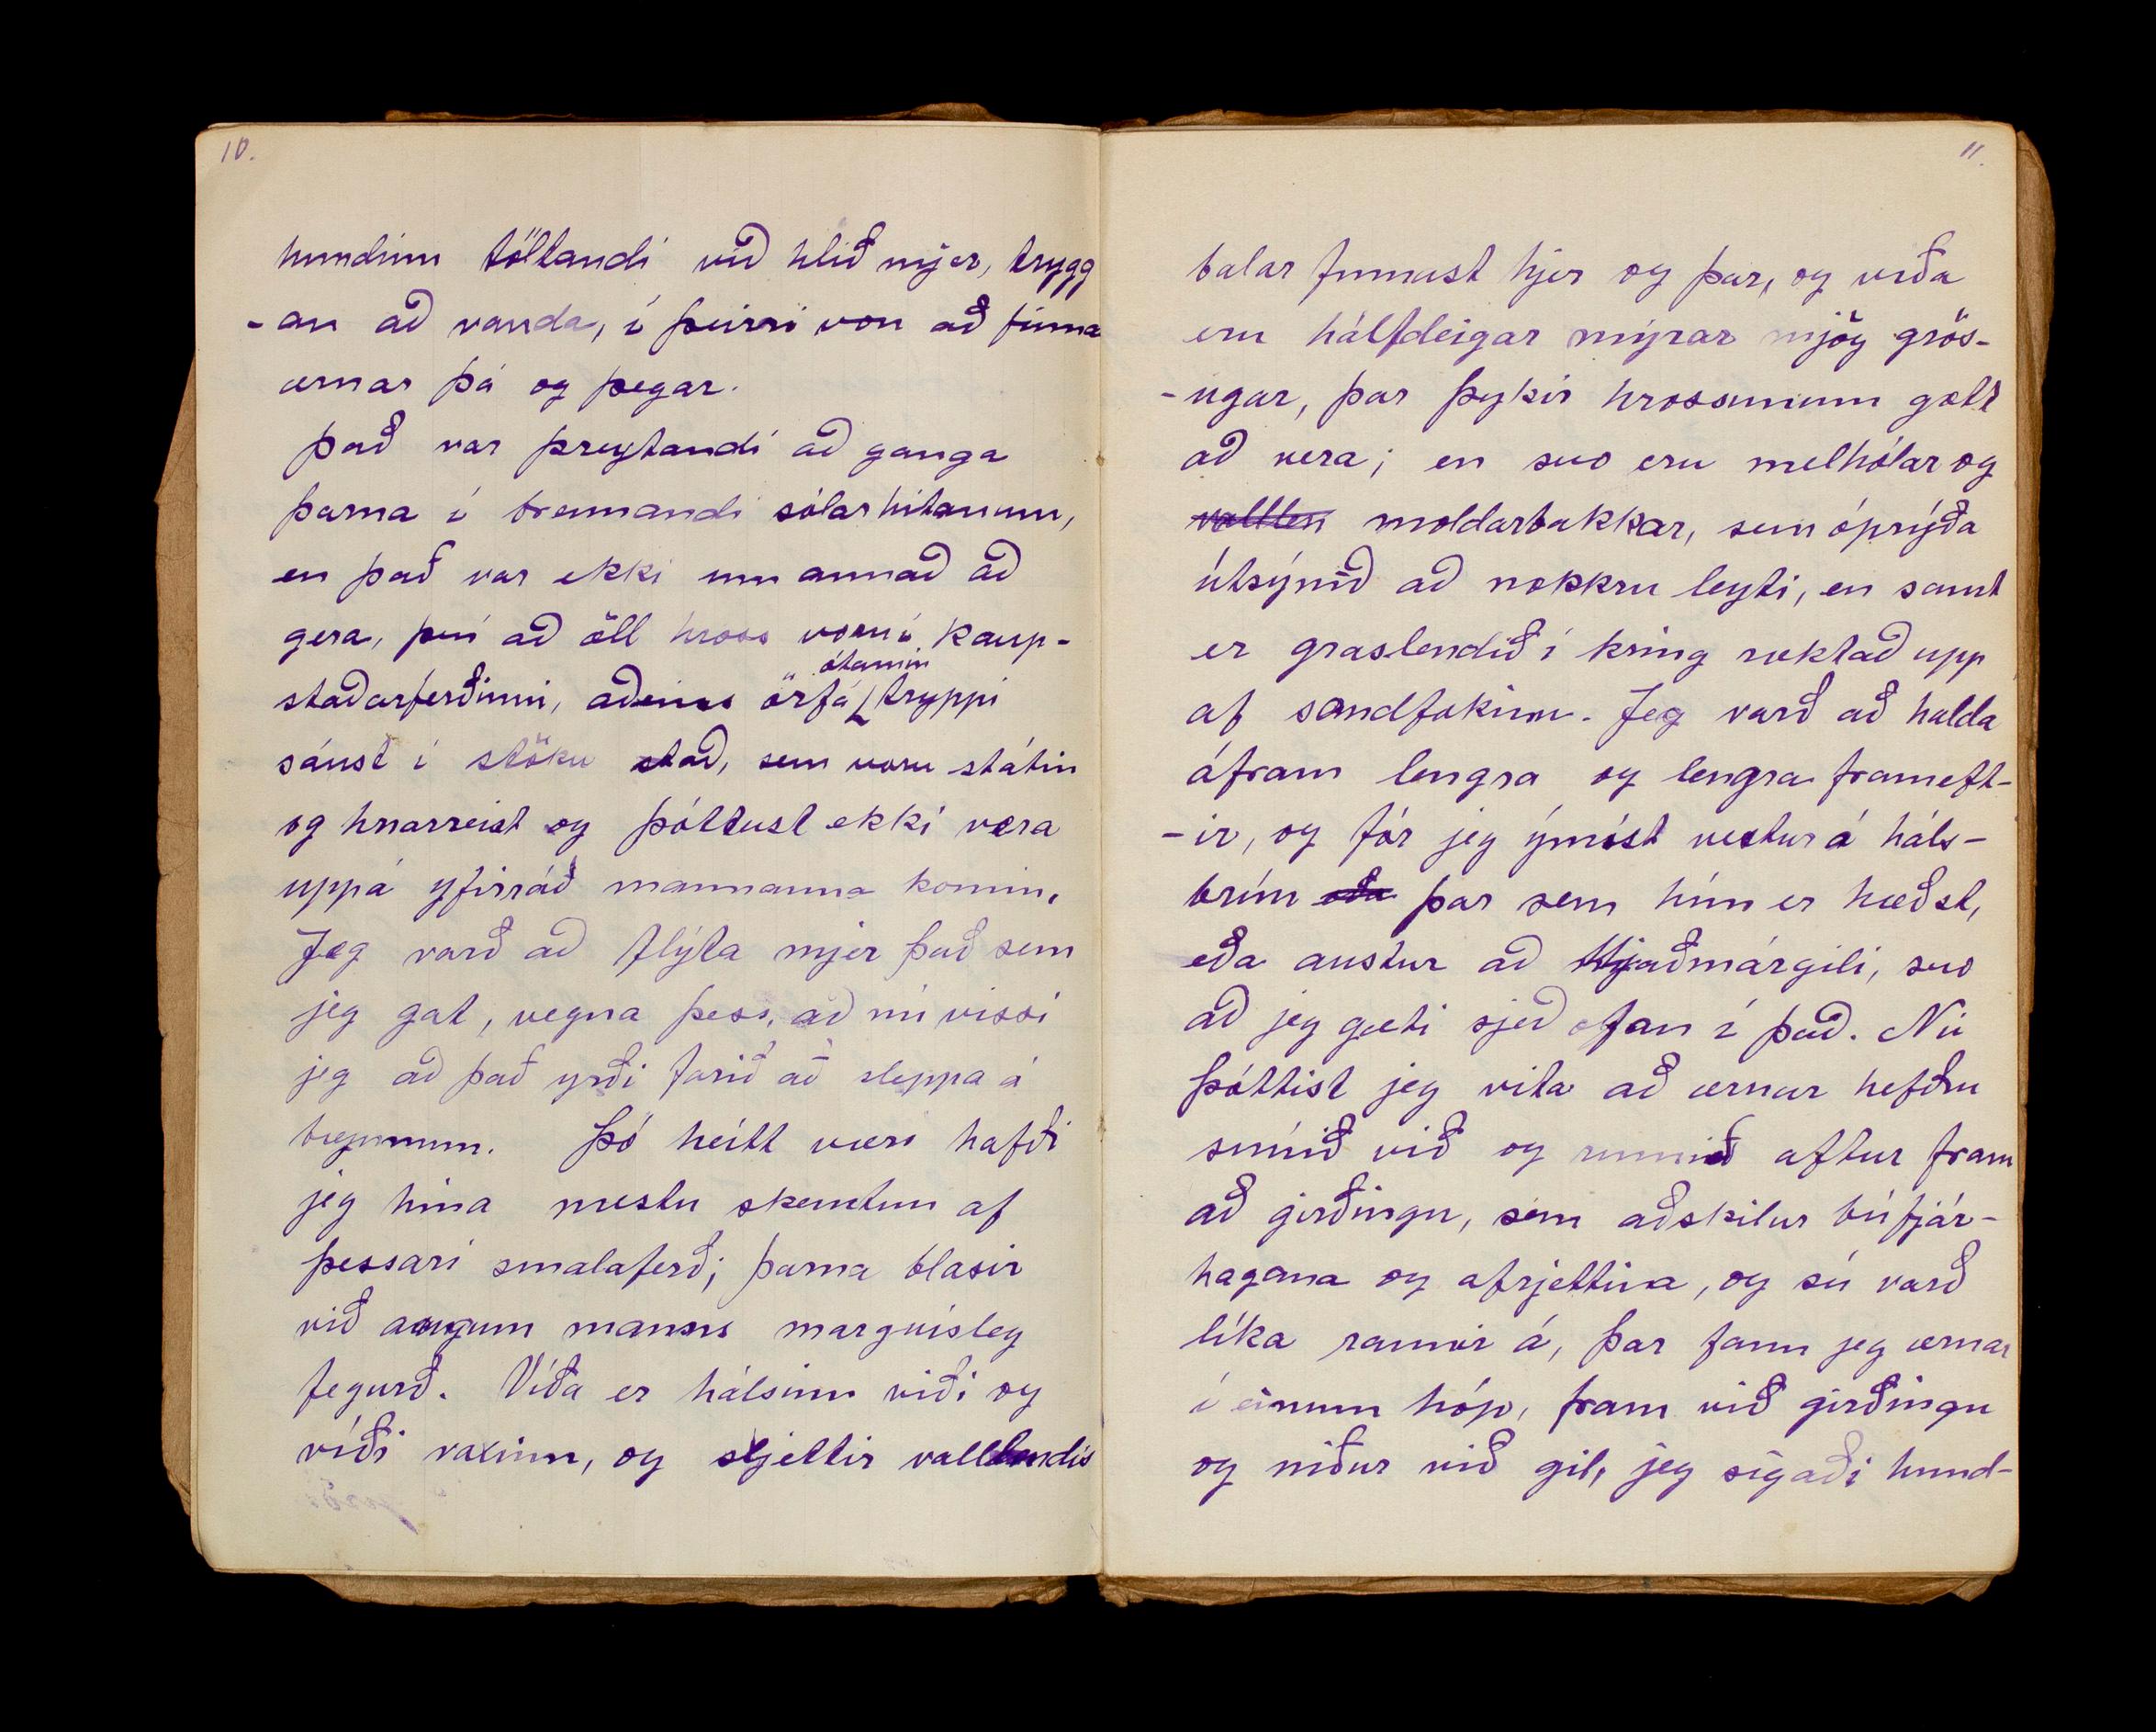 10.
hundinn töltandi við hlið mjer, trygg
-an að vanda, í þeirri von að finna
ærnar þá og þegar.
Það var þreytandi að ganga
þarna í brennandi sólarhitanum,
en það var ekki um annað að
gera, því að öll hross voru í kaup-
staðarferðinni, aðeins örfá ótamin tryppi
sáust í stöku stað, sem voru státin
og hnarreist og þóttust ekki vera
uppá yfirráð mannanna komin.
Jeg varð að flýta mjer það sem
jeg gat, vegna þess, að nú vissi
jeg að það yrði farið að sleppa á
bænum. Þó heitt væri hafði
jeg hina mestu skemtun af
þessari smalaferð; þarna blasir
við augum manns margvísleg
fegurð. Víða er hálsinn viði og
víði vaxinn, og sljettir valllendis
11.
balar finnast hjer og þar, og víða
eru hálfdeigar mýrar mjög grös-
-ugar, þar þykir hrossunum gott
að vera; en svo eru melhólar og
valllen moldarbakkar, sem óprýða
útsýnið að nokkru leyti, en samt
er graslendið í kring ræktað upp
af sandfokinu. Jeg varð að halda
áfram lengra og lengra frameft-
-ir, og fór jeg ýmist vestur á háls-
brún eða þar sem hún er hæðst,
eða austur að Hjaðmárgili, svo
að jeg gæti sjeð ofan í það. Nú
þóttist jeg vita að ærnar hefðu
snúið við og runnið aftur fram
að girðingu, sem aðskilur búfjár-
hagana og afrjettina, og sú varð
líka raunir á, þar fann jeg ærnar
í einum hóp, fram við girðingu
og niður við gil, jeg sigaði hund-